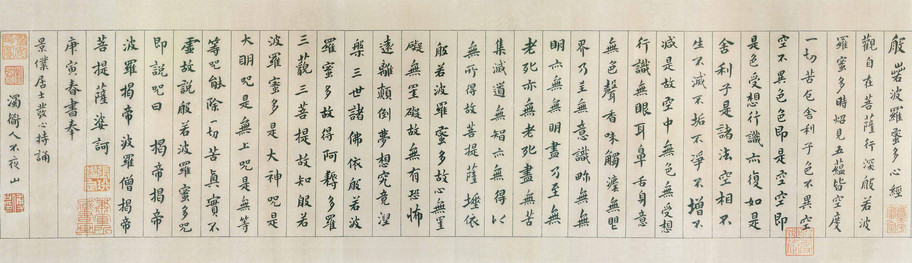 般若波羅蜜多心經
觀自在菩薩行深般若波
羅蜜多時照見五蘊皆空度
一切苦厄舍利子色不異空
空不異色色即是空空即
是色受想行識亦復如是
舍利子是諸法空相不
生不滅不垢不淨不增不
減是故空中無色無受想
行識無眼耳鼻舌身意
無色聲香味觸法無眼
界乃至無意識界無無
明亦無無明盡乃至無
老死亦無老死盡無苦
集滅道無智亦無得以
無所得故菩提薩埵依
般若波羅蜜多故心無罣
礙無罣礙故無有恐怖
遠離顛倒夢想究竟涅
槃三世諸佛依般若波
羅蜜多故得阿耨多羅
三藐三菩提故知般若
波羅蜜多是大神呪是
大明呪是無上呪是無等
等呪能除一切苦真實不
虛故說般若波羅蜜多呪
即說呪曰 揭帝揭帝
波羅揭帝 波羅僧揭帝
菩提薩婆訶
庚寅春書奉
景僕居士發心持誦
人不夜山